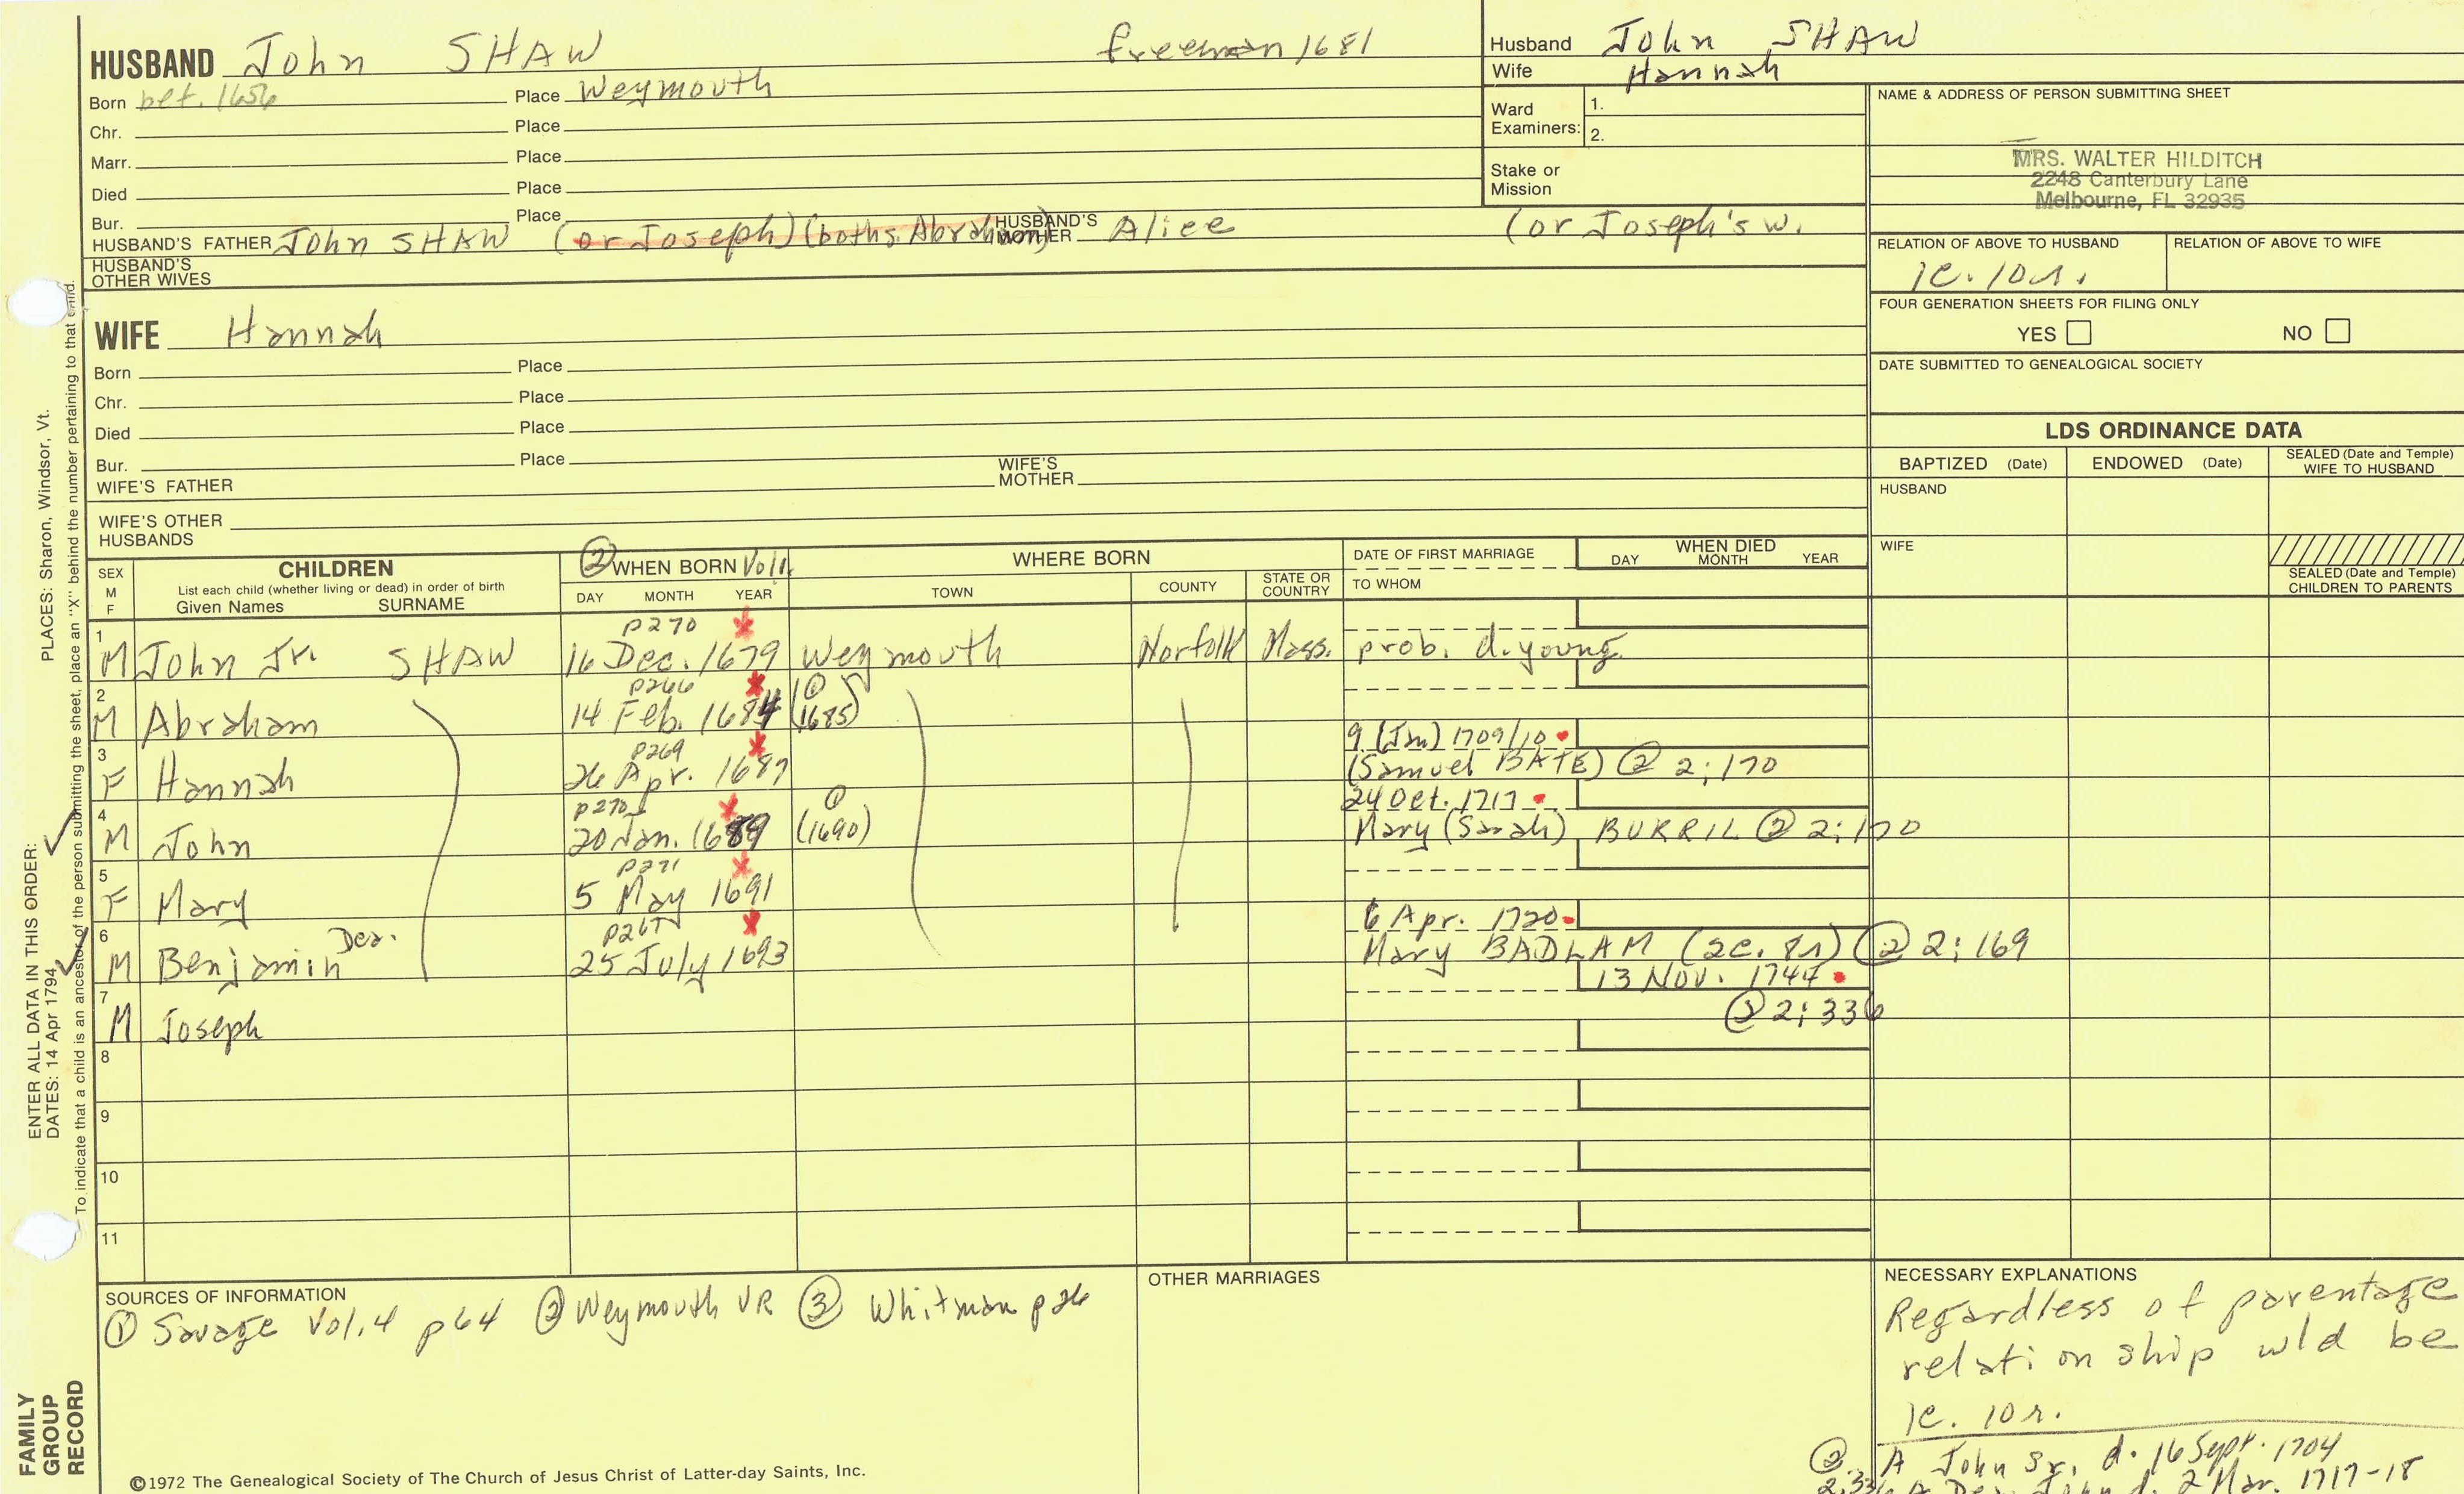 HUSBAND John SHAW freeman 1681
Born bef. 1656 Place Weymouth
Chr. Place
Marr. Place
Died Place
Bur. Place
HUSBAND'S FATHER John SHAW (or Joseph) (both s. Abraham) HUSBAND'S MOTHER Alice (or Joseph's w.
HUSBAND'S OTHER WIVES
Husband John SHAW
Wife Hannah
Ward Examiners: 1.
2.
Stake or Mission
NAME & ADDRESS OF PERSON SUBMITTING SHEET
MRS. WALTER HILDITCH
2248 Canterbury Lane
Melbourne, FL 32935
RELATION OF ABOVE TO HUSBAND RELATION OF ABOVE TO WIFE
1c. 10r.
FOUR GENERATION SHEETS FOR FILING ONLY
YES NO
DATE SUBMITTED TO GENEALOGICAL SOCIETY
WIFE Hannah
Born Place
Chr. Place
Died Place
Bur. Place
WIFE'S FATHER WIFE'S MOTHER
WIFE'S OTHER HUSBANDS
LDS ORDINANCE DATA
BAPTIZED (Date) ENDOWED (Date) SEALED (Date and Temple) WIFE TO HUSBAND
HUSBAND
WIFE
SEALED (Date and Temple) CHILDREN TO PARENTS
SEX M F
CHILDREN
List each child (whether living or dead) in order of birth
Given Names SURNAME
② WHEN BORN Vol1.
DAY MONTH YEAR
WHERE BORN
TOWN COUNTY STATE OR COUNTRY
DATE OF FIRST MARRIAGE
TO WHOM
WHEN DIED
DAY MONTH YEAR
p270
1 M John Jr. SHAW 16 Dec. 1679 Weymouth Norfolk Mass. prob. d. young
p266 ①
2 M Abraham 14 Feb. 1684 (1685)
p269 9 (Jm) 1709/10
3 F Hannah 26 Apr. 1687 (Samuel BATE) ② 2:170
p270 ① 24 Oct. 1717
4 M John 20 Jan. 1689 (1690) Mary (Sarah) BURRIL ② 2:170
p271
5 F Mary 5 May 1691
p267 6 Apr. 1720
6 M Benjamin Dea. 25 July 1693 Mary BADLAM (2c. 8r) ② 2:169
13 Nov. 1744
7 M Joseph ② 2:336
8
9
10
11
SOURCES OF INFORMATION
① Savage Vol.4 p64 ② Weymouth VR ③ Whitman p26
OTHER MARRIAGES
NECESSARY EXPLANATIONS
Regardless of parentage
relationship wld be
1c. 10r.
② A John Sr. d. 16 Sept. 1704
2:336 A Dea. John d. 2 Mar. 1717-18
©1972 The Genealogical Society of The Church of Jesus Christ of Latter-day Saints, Inc.
FAMILY
GROUP
RECORD
ENTER ALL DATA IN THIS ORDER:
DATES: 14 Apr 1794
PLACES: Sharon, Windsor, Vt.
To indicate that a child is an ancestor of the person submitting the sheet, place an "X" behind the number pertaining to that child.